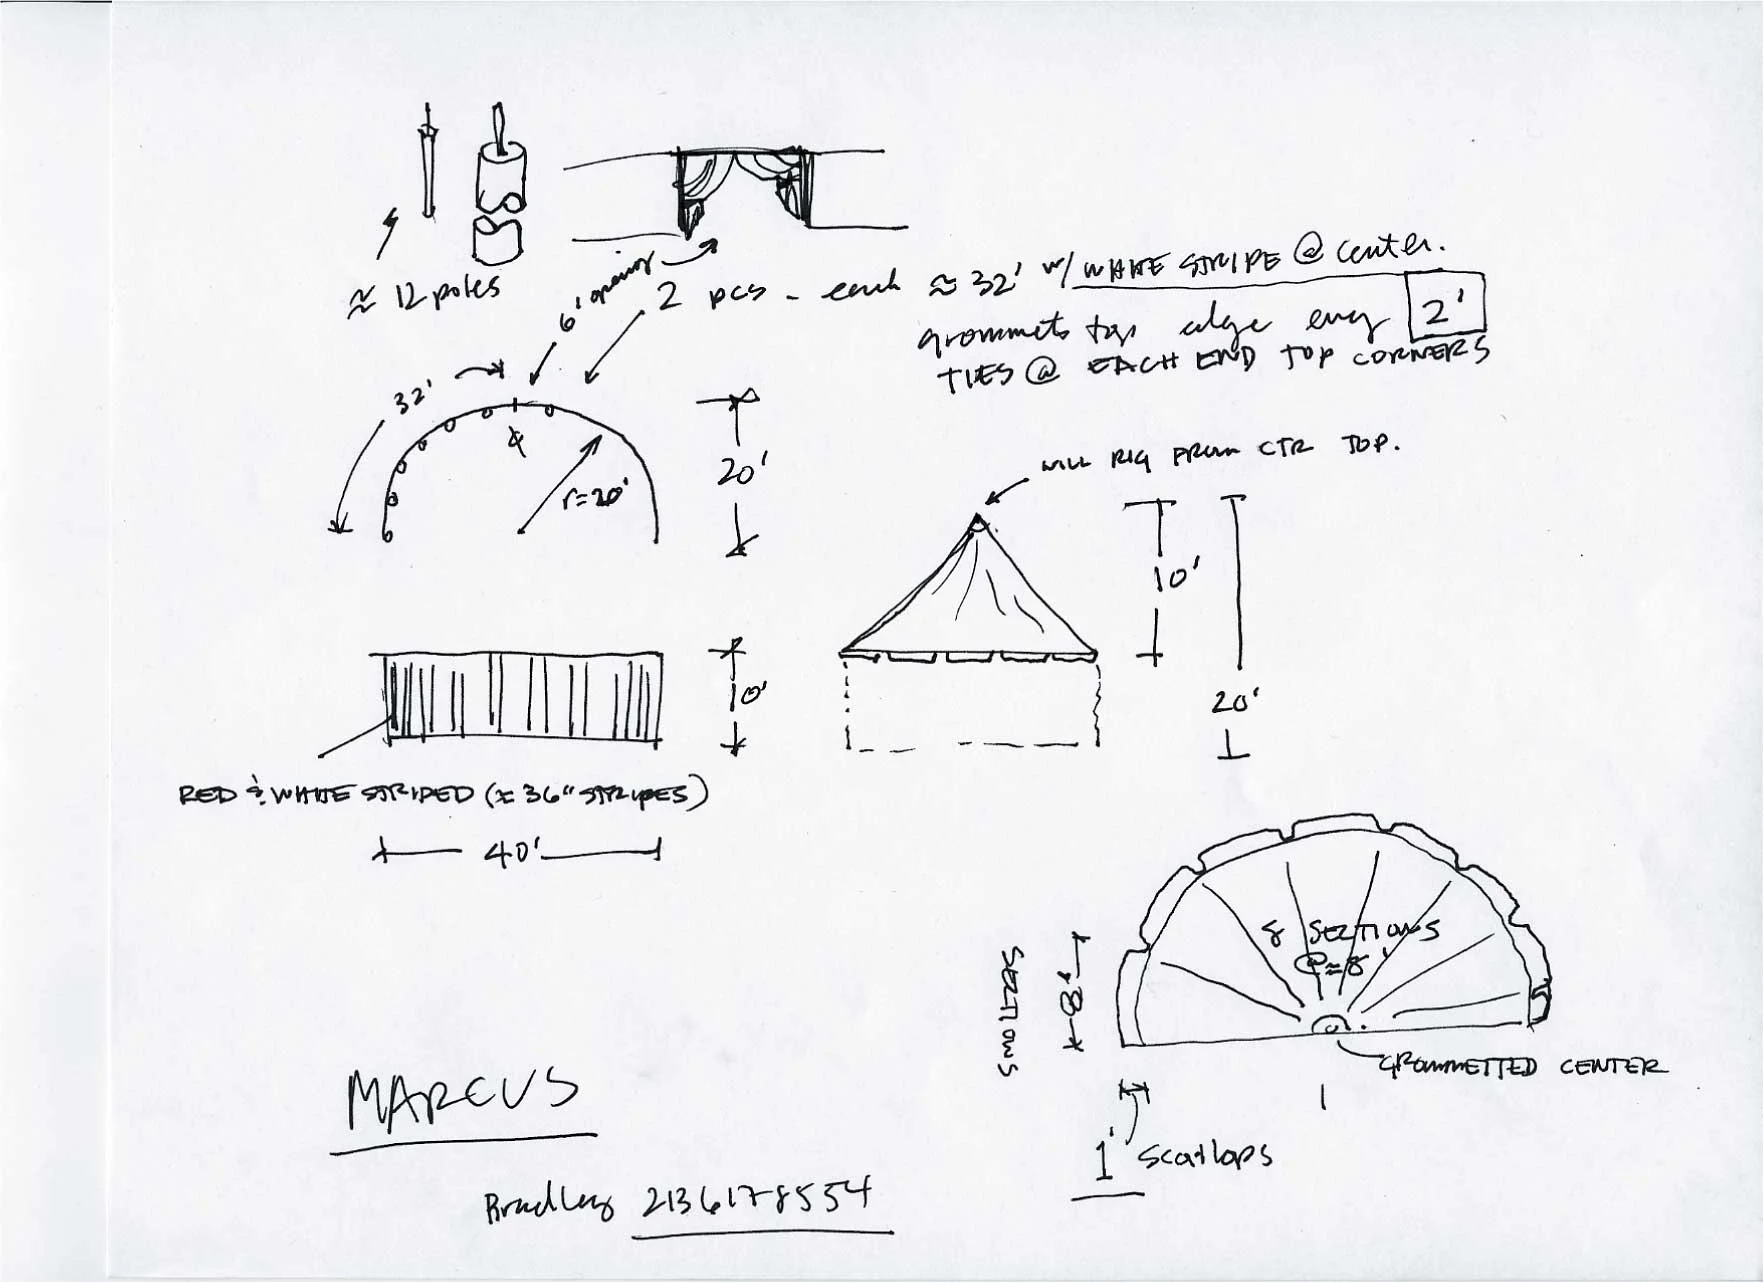 ≈ 12 poles
6' opening
2 pcs - each ≈ 32' w/ WHITE STRIPE @ center.
grommets top edge every 2'
TIES @ EACH END TOP CORNERS
32'
r=20'
20'
WILL RIG FROM CTR TOP.
10'
20'
10'
RED & WHITE STRIPED (≈ 36" STRIPES)
40'
8 SECTIONS
@≈8'
8'
SECTIONS
GROMMETTED CENTER
1' Scallops
MARCUS
Bradley 2136178554